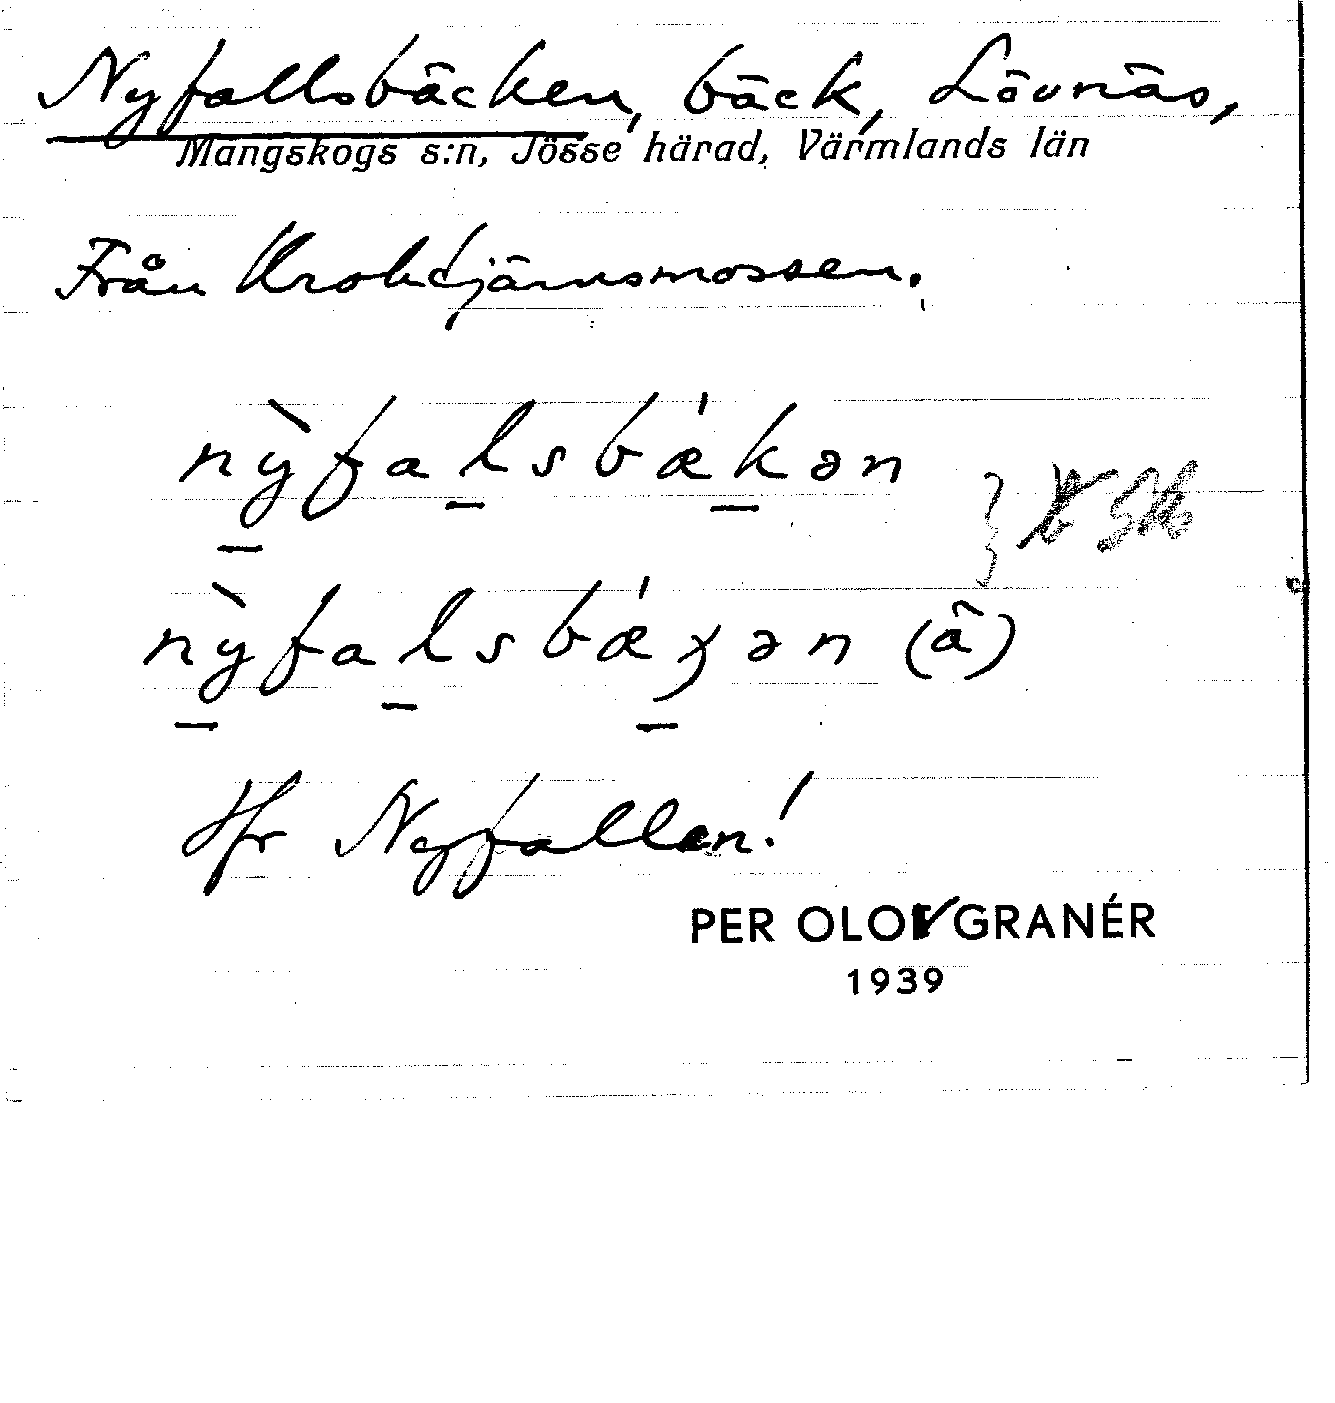 Nyfallsbäcken, bäck, Lövnäs,
Mangskogs s:n, Jösse härad, Värmlands län
Från Kroktjärnsmossen.
nỳfalsbǽkən
nỳfalsbǽχən (â)
Hfr Nyfallen!
PER OLOV GRANÉR
1939